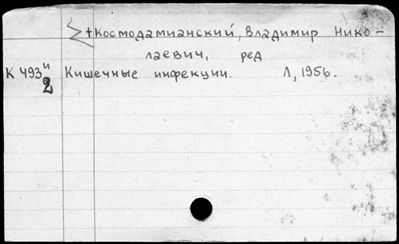 +Космодамианский, Владимир Нико-
лаевич, ред
К 493и Кишечные инфекции. Л, 1956.
2